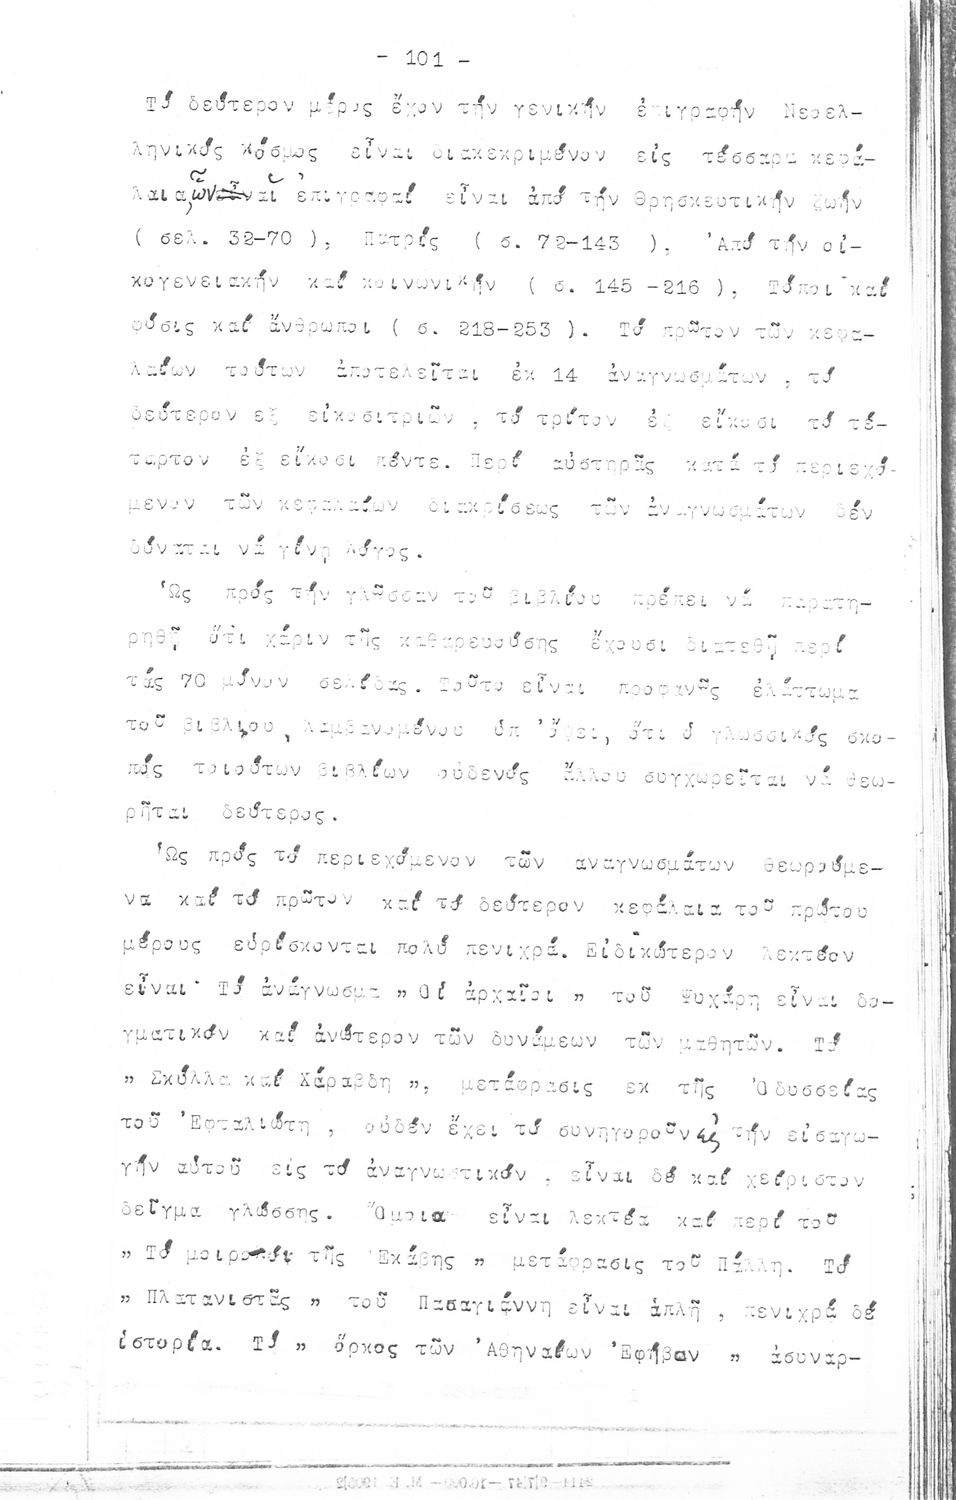 - 101 -
Τό δεύτερον μέρος ἔχον τήν γενικήν ἐπιγραφήν Νεοελ-
ληνικός κόσμος εἶναι διακεκριμένον εἰς τέσσαρα κεφά-
λαια, ὧν αἱ ἐπιγραφαί εἶναι ἀπό τήν Θρησκευτικήν ζωήν
( σελ. 32-70 ), Πατρίς ( σ. 72-143 ), Ἀπό τήν οἰ-
κογενειακήν καί κοινωνικήν ( σ. 145 -216 ), Τόποι καί
φύσις καί ἄνθρωποι ( σ. 218-253 ). Τό πρῶτον τῶν κεφα-
λαίων τούτων ἀποτελεῖται ἐκ 14 ἀναγνωσμάτων , τό
δεύτερον εξ εἰκοσιτριῶν , τό τρίτον ἐξ εἴκοσι τό τέ-
ταρτον ἐξ εἴκοσι πέντε. Περί αὐστηρᾶς κατά τό περιεχό-
μενον τῶν κεφαλαίων διακρίσεως τῶν ἀναγνωσμάτων δέν
δύναται νά γίνῃ λόγος.
Ὡς πρός τήν γλῶσσαν τοῦ βιβλίου πρέπει νά παρατη-
ρηθῇ ὅτι χάριν τῆς καθαρευούσης ἔχουσι διατεθῇ περί
τάς 70 μόνον σελίδας. Τοῦτο εἶναι προφανῶς ἐλάττωμα
τοῦ βιβλιου, λαμβανομένου ὑπ 'ὄψει, ὅτι ὁ γλωσσικός σκο-
πός τοιούτων βιβλίων οὐδενός ἄλλου συγχωρεῖται νά θεω-
ρῆται δεύτερος.
Ὡς πρός τό περιεχόμενον τῶν αναγνωσμάτων θεωρούμε-
να καί τό πρῶτον καί τό δεύτερον κεφάλαια τοῦ πρώτου
μέρους εὑρίσκονται πολύ πενιχρά. Εἰδικώτερον λεκτέον
εἶναι· Τό ἀνάγνωσμα „ Οἱ ἀρχαῖοι „ τοῦ Ψυχάρη εἶναι δο-
γματικόν καί ἀνώτερον τῶν δυνάμεων τῶν μαθητῶν. Τό
„ Σκύλλα καί Χάραβδη „, μετάφρασις εκ τῆς Ὀδυσσείας
τοῦ Ἐφταλιώτη , οὐδέν ἔχει τό συνηγοροῦν εἰς τήν εἰσαγω-
γήν αὐτοῦ εἰς τό ἀναγνωστικόν , εἶναι δέ καί χείριστον
δεῖγμα γλώσσης. Ὅμοια εἶναι λεκτέα καί περί τοῦ
„ Τό τῆς Ἑκάβης „ μετάφρασις τοῦ Πάλλη. Τό
„ Πλατανιστᾶς „ τοῦ Παπαγιάννη εἶναι ἁπλῆ , πενιχρά δέ
ἱστορία. Τό „ ὅρκος τῶν Ἀθηναίων Ἐφήβων „ ἀσυναρ-